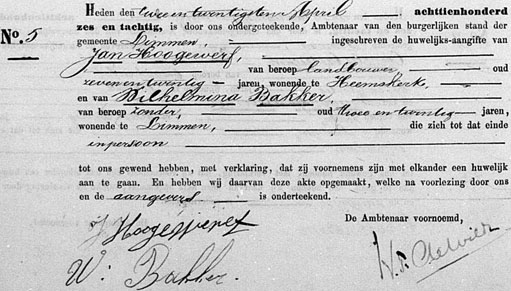 Heden den twee en twintigsten April achttienhonderd
No. 5 zes en tachtig, is door ons ondergeteekende, Ambtenaar van den burgerlijken stand der
gemeente Limmen, ingeschreven de huwelijks-aangifte van
Jan Hoogewerf,
van beroep landbouwer, oud
zeven en twintig jaren, wonende te Heemskerk,
en van Wilhelmina Bakker,
van beroep zonder, oud twee en twintig jaren,
wonende te Limmen, die zich tot dat einde
in persoon
tot ons gewend hebben, met verklaring, dat zij voornemens zijn met elkander een huwelijk
aan te gaan. En hebben wij daarvan deze akte opgemaakt, welke na voorlezing door ons
en de aangevers is onderteekend.
De Ambtenaar voornoemd,
J Hoogewerf
W: Bakker.